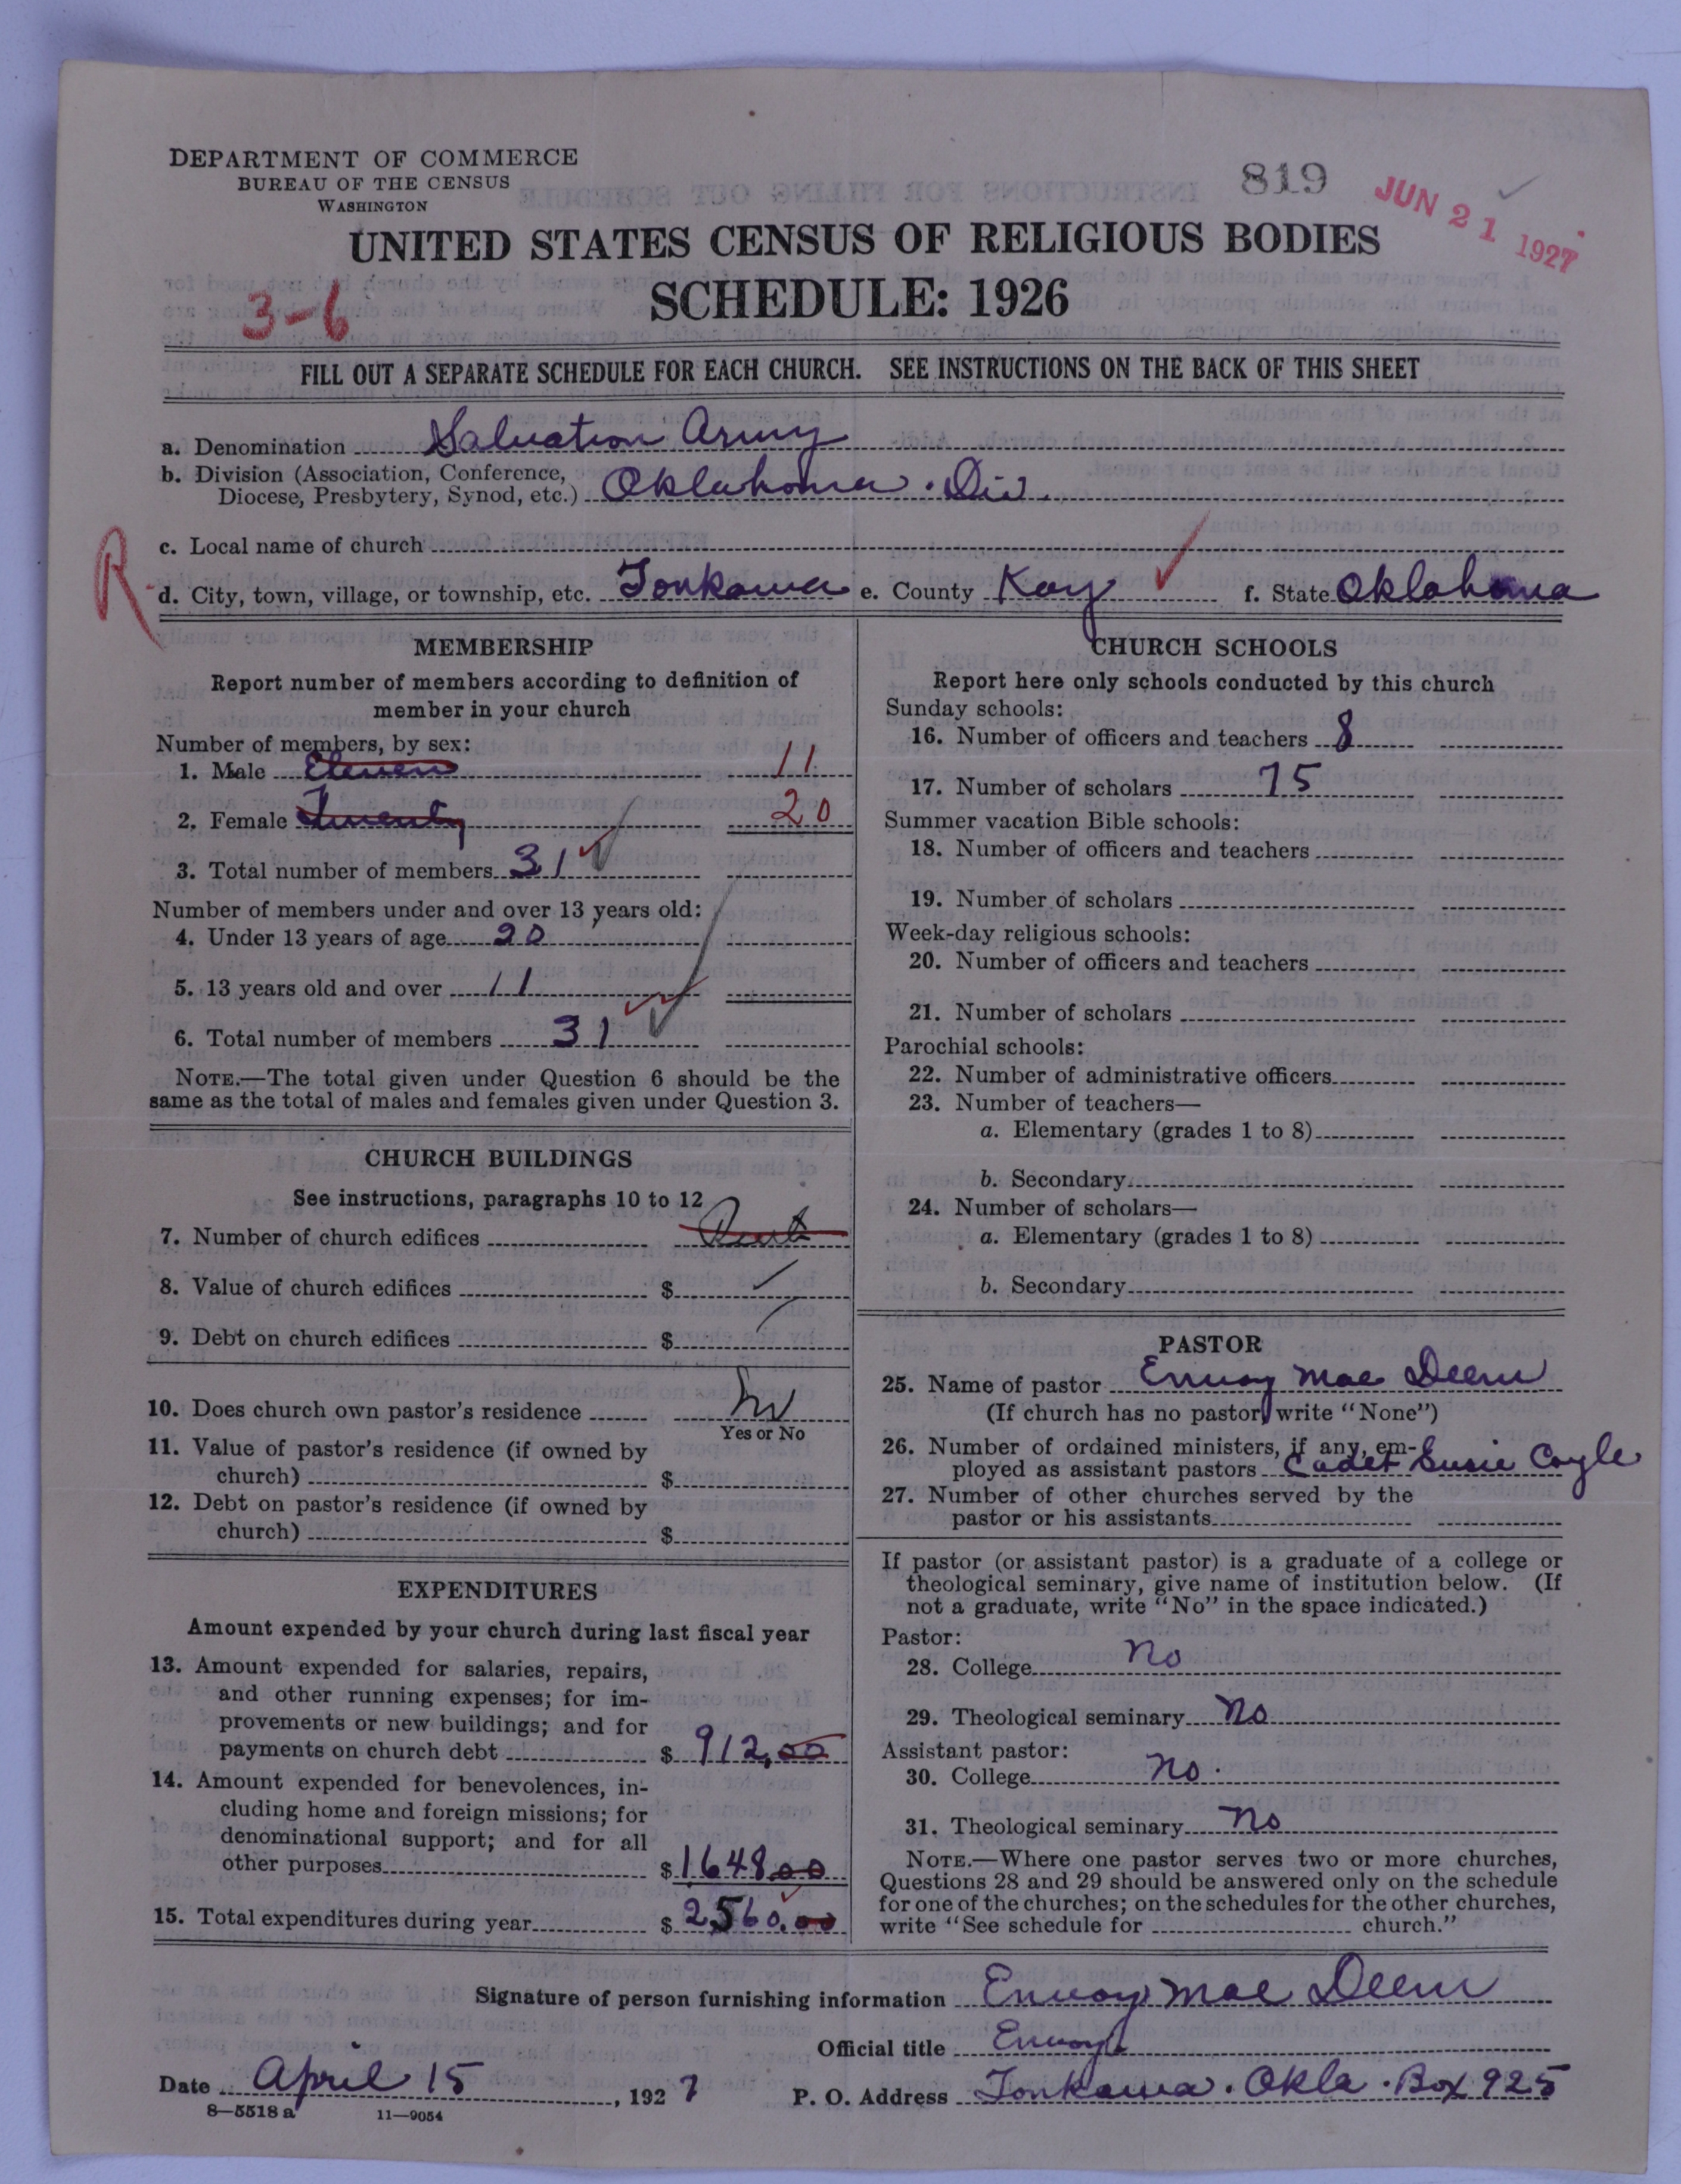 DEPARTMENT OF COMMERCE
BUREAU OF THE CENSUS
WASHINGTON
819
JUN 21 1927
UNITED STATES CENSUS OF RELIGIOUS BODIES
SCHEDULE: 1926
3-6
FILL OUT A SEPARATE SCHEDULE FOR EACH CHURCH. SEE INSTRUCTIONS ON THE BACK OF THIS SHEET
a. Denomination Salvation Army
b. Division (Association, Conference,
Diocese, Presbytery, Synod, etc.) Oklahoma. Div.
c. Local name of church
R
d. City, town, village, or township, etc. Tonkawa e. County Kay f. State Oklahoma
MEMBERSHIP
Report number of members according to definition of
member in your church
Number of members, by sex:
1. Male Eleven 11
2. Female Twenty 20
3. Total number of members 31
Number of members under and over 13 years old:
4. Under 13 years of age 20
5. 13 years old and over 11
6. Total number of members 31
NOTE.—The total given under Question 6 should be the
same as the total of males and females given under Question 3.
CHURCH BUILDINGS
See instructions, paragraphs 10 to 12
7. Number of church edifices Rent
8. Value of church edifices $
9. Debt on church edifices $
10. Does church own pastor's residence No
Yes or No
11. Value of pastor's residence (if owned by
church) $
12. Debt on pastor's residence (if owned by
church) $
EXPENDITURES
Amount expended by your church during last fiscal year
13. Amount expended for salaries, repairs,
and other running expenses; for im-
provements or new buildings; and for
payments on church debt $ 912,00
14. Amount expended for benevolences, in-
cluding home and foreign missions; for
denominational support; and for all
other purposes $ 1648.00
15. Total expenditures during year $ 2560.00
CHURCH SCHOOLS
Report here only schools conducted by this church
Sunday schools:
16. Number of officers and teachers 8
17. Number of scholars 75
Summer vacation Bible schools:
18. Number of officers and teachers
19. Number of scholars
Week-day religious schools:
20. Number of officers and teachers
21. Number of scholars
Parochial schools:
22. Number of administrative officers
23. Number of teachers—
a. Elementary (grades 1 to 8)
b. Secondary
24. Number of scholars—
a. Elementary (grades 1 to 8)
b. Secondary
PASTOR
25. Name of pastor Envoy Mae Deem
(If church has no pastor, write "None")
26. Number of ordained ministers, if any, em-
ployed as assistant pastors Cadet Susie Coyle
27. Number of other churches served by the
pastor or his assistants
If pastor (or assistant pastor) is a graduate of a college or
theological seminary, give name of institution below. (If
not a graduate, write "No" in the space indicated.)
Pastor:
28. College No
29. Theological seminary No
Assistant pastor:
30. College No.
31. Theological seminary No
NOTE.—Where one pastor serves two or more churches,
Questions 28 and 29 should be answered only on the schedule
for one of the churches; on the schedules for the other churches,
write "See schedule for church."
Signature of person furnishing information Envoy Mae Deem
Official title Envoy
Date April 15, 1927 P. O. Address Tonkawa. Okla. Box 925
8—5518 a 11—9054